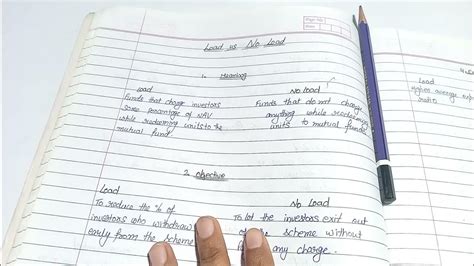 Page No.
Date
Load vs No Load
1. Meaning
Load
Funds that charge investors
some percentage of NAV
while redeeming units to the
mutual fund.
No Load
Funds that do not charge
anything while redeeming
units to mutual fund
2. Objective
Load
To reduce the % of
investors who withdraw
early from the scheme
No Load
To let the investors exit out
the scheme without
any charge.
Load
Higher average
ratio